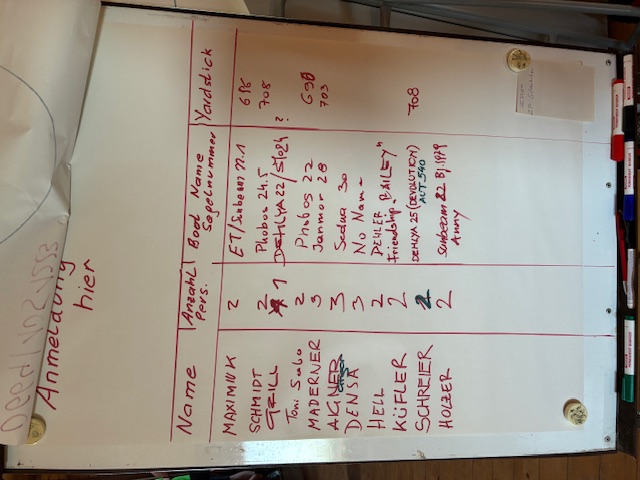 Anmeldung
hier
Name Anzahl Pers. Boot Name Segelnummer Yardstick
MAXIMIUK 2 ET/Sunbeam 22.1 696
SCHMIDT 2 Phobos 24.5 708
GRILL 1 DEHLYA 22/S1024 ?
Toni Sabo 2 Phobos 22 690
MADERNER 3 Janmor 28 703
AIGNER 3 Sedna 30
DENSA 3 No Name
HELL 2 DEHLER
KÜFLER 2 Friendship "BAILEY"
SCHREIER 2 DEHLYA 25 (DEVOLUTION) AUT 540 708
HOLZER 2 Sunbeam 22 BJ. 1979
Anny